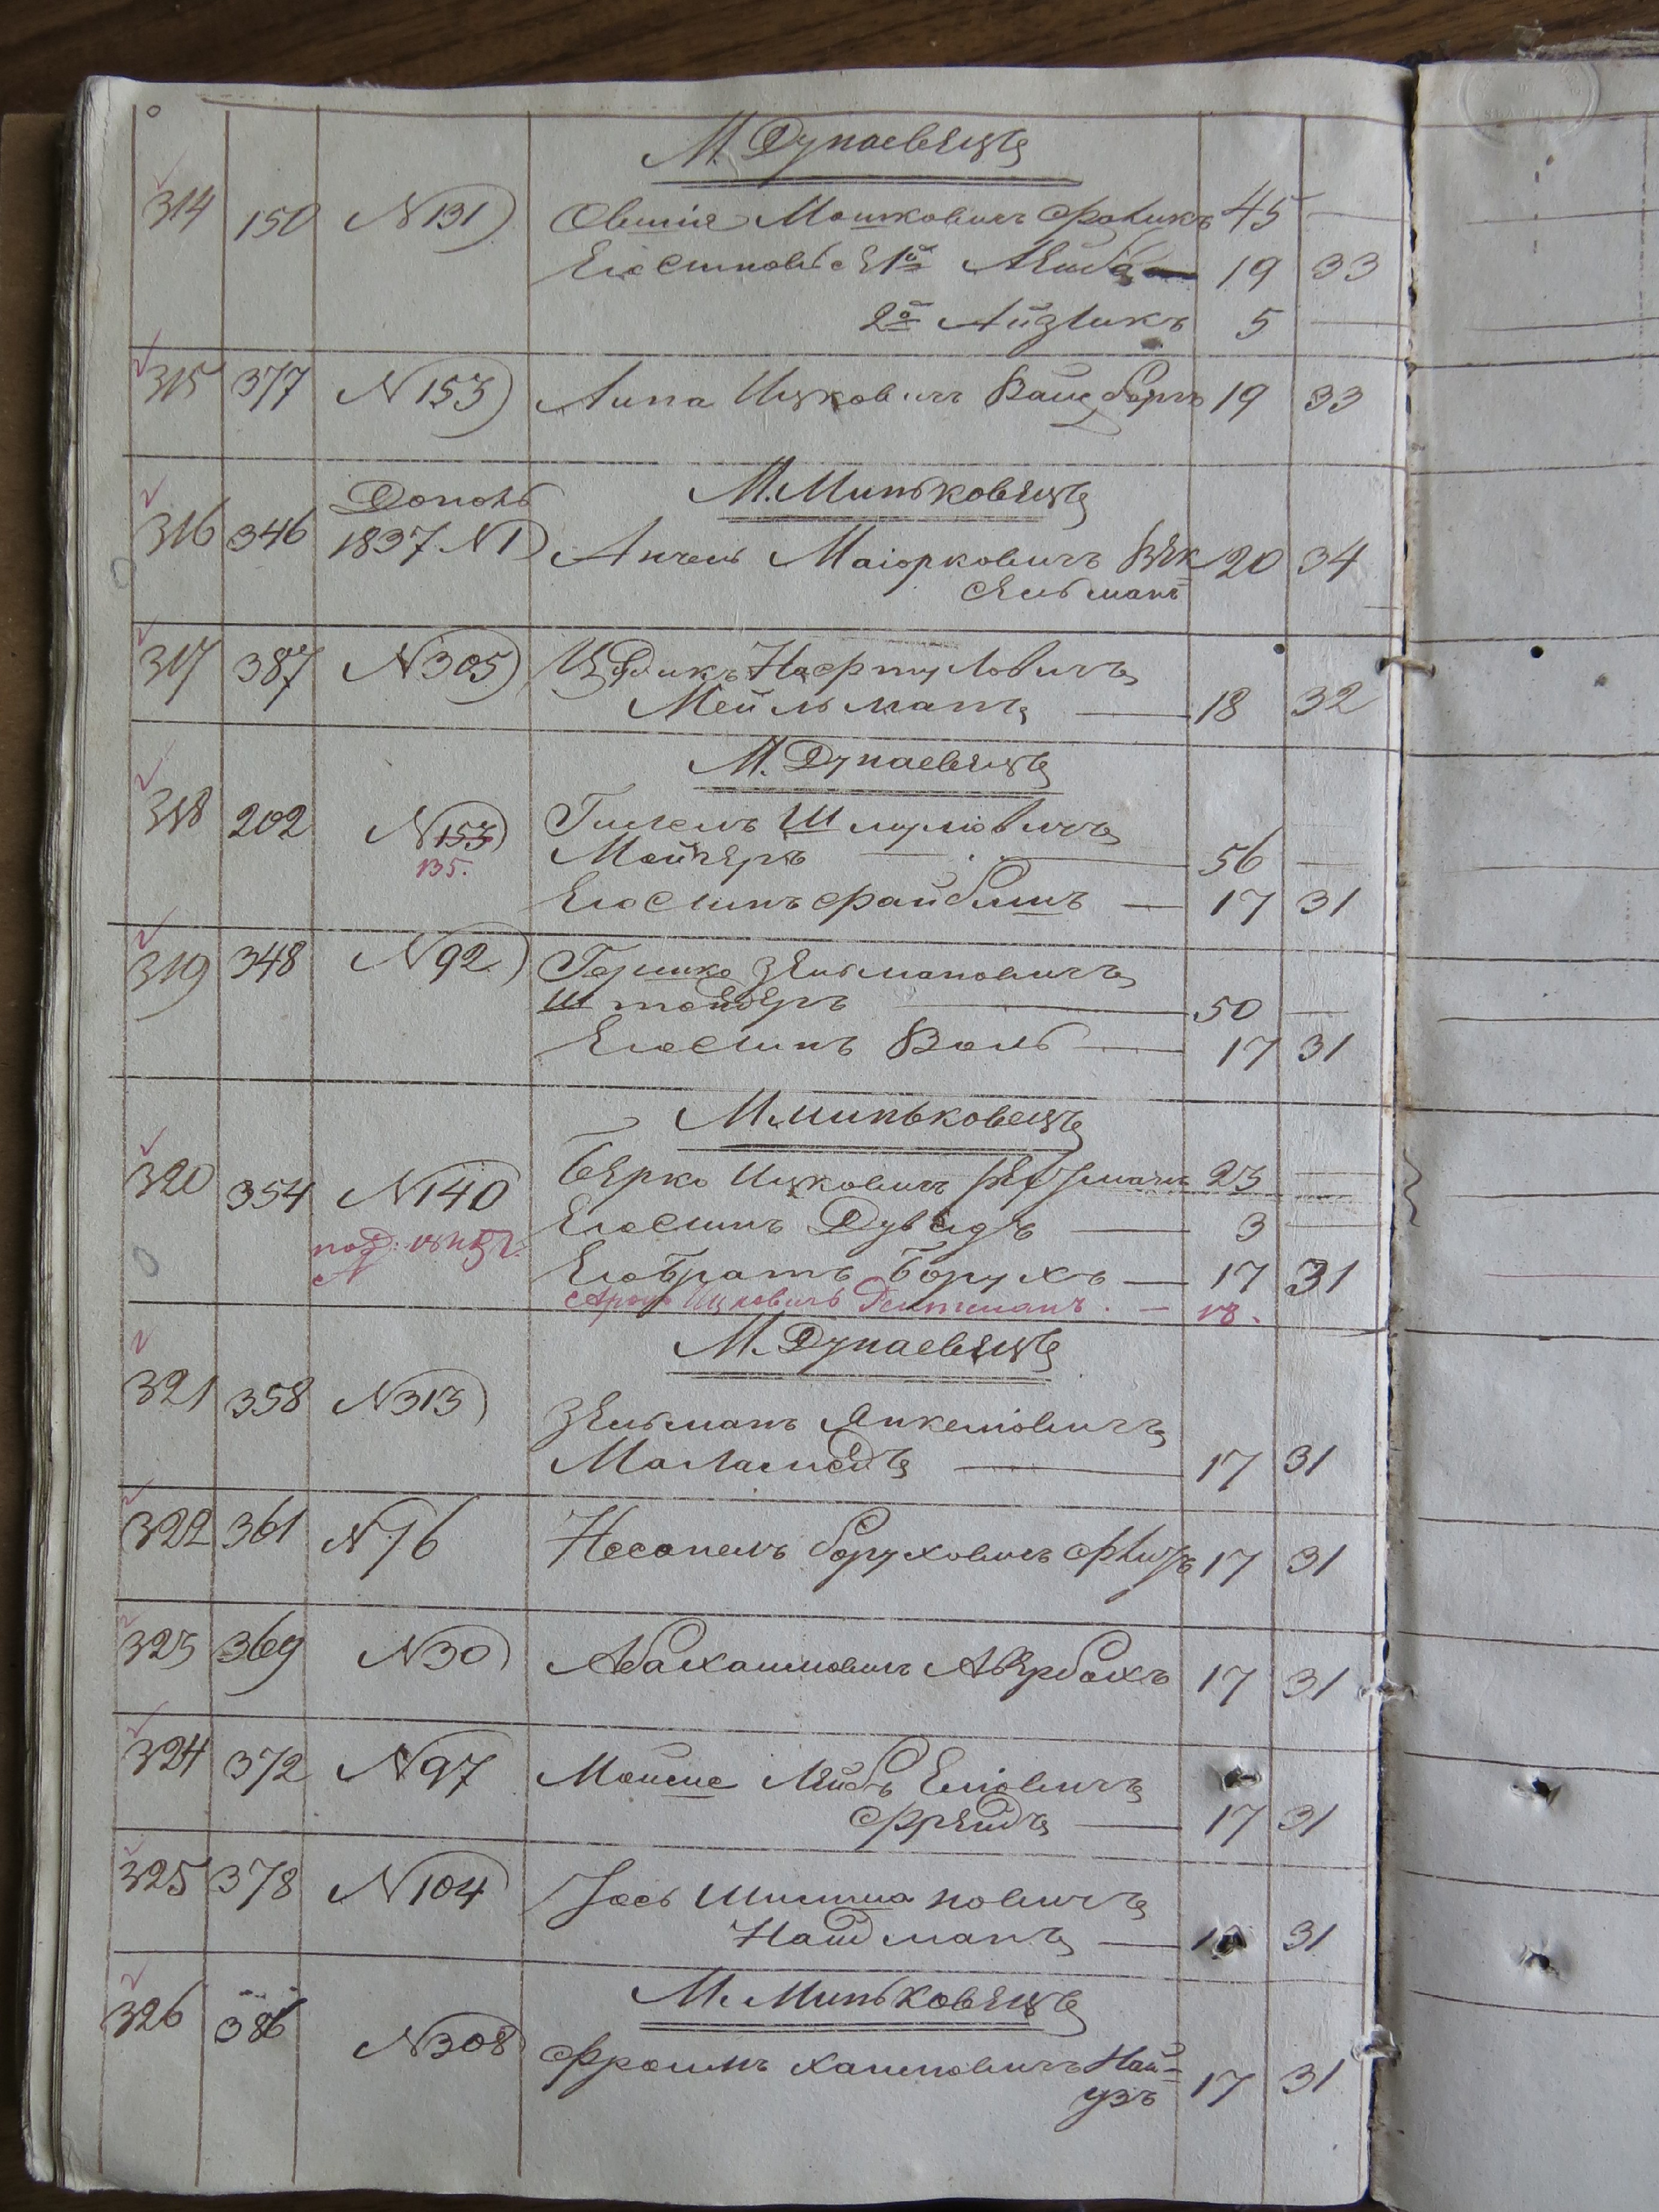 М. Дунаевецъ
314 150 N 131) Овшія Мошковичъ Фроликъ 45 —
Его сыновья 1й Лейба 19 33
2й Айзикъ 5 —
315 377 N 153) Липа Ицковичъ Вайсбергъ 19 33
М. Миньковецъ
Дополн
316 346 1837 N 1) Анчель Маіорковичъ Век 20 34
сельманъ
317 387 N 305) Цодикъ Нафтуловичъ
Мейльманъ — 18 32
М. Дунаевецъ
318 202 N 153) Гилель Шмулювичъ
135. Мойперъ — 56 —
Его сынъ Файбишъ — 17 31
319 348 N 92) Гершко Зельмановичъ
Штейнберъ — 50 —
Его сынъ Воль — 17 31
М. Миньковецъ
320 354 N 140 Берко Ицковичъ 23 —
Его сынъ Дувидъ — 3 —
Его братъ Борухъ — 17 31
Ицковичъ — 18.
М. Дунаевецъ
321 358 N 313) Зельманъ Янкеліовичъ
Маламедъ — 17 31
322 361 N 76 Несонель Боруховичъ 17 31
323 369 N 30) Аба Хаимовичъ Авербахъ 17 31
324 372 N 97 Мойше Лейбъ Еліовичъ
Фрейдъ — 17 31
325 378 N 104 Іось Шимшановичъ
Найдманъ — 31
М. Миньковецъ
326 386 N 308 Фроимъ Хаимовичъ Най-
узъ 17 31